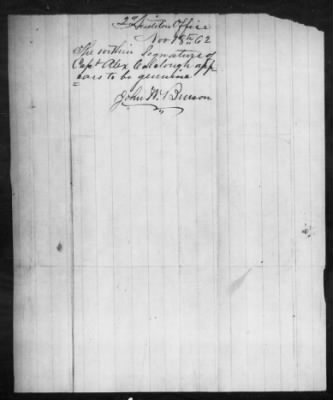 2nd Auditors Office
Nov 18th 62
The within Signature of
Capt Alex Colclough app
ears to be genuine
John W.